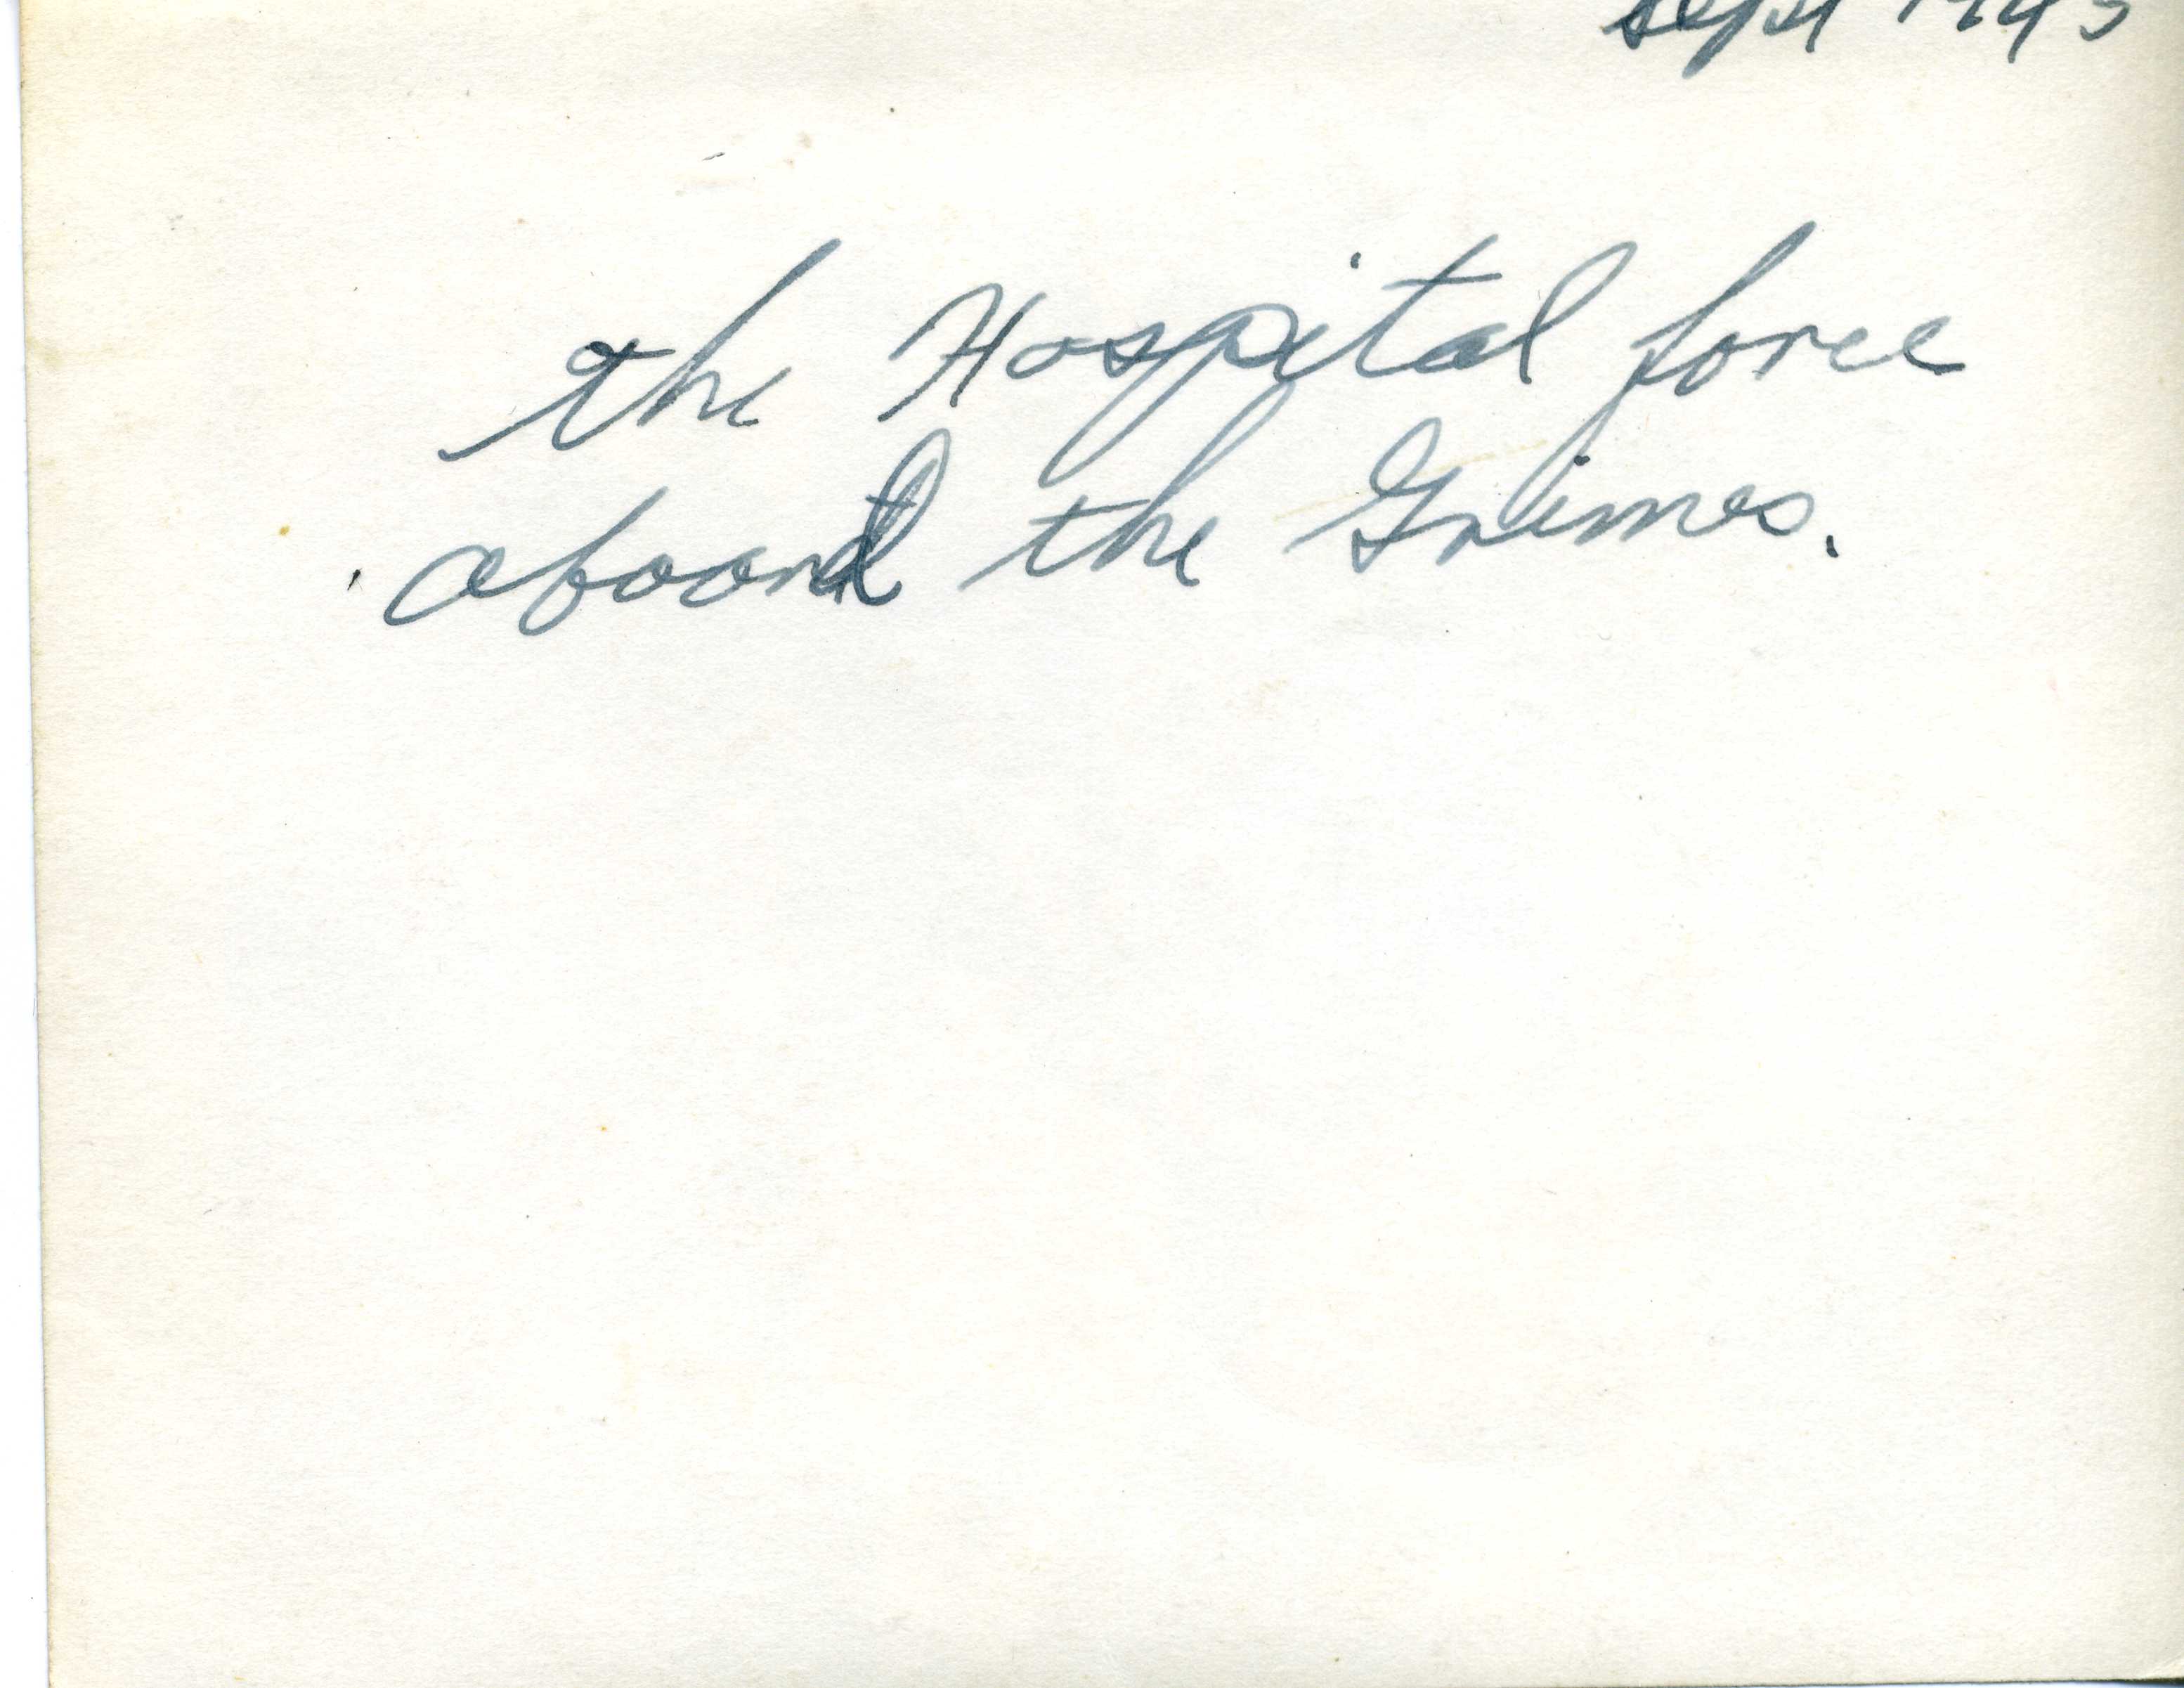 Sept 1945
the Hospital force
aboard the Grimes.